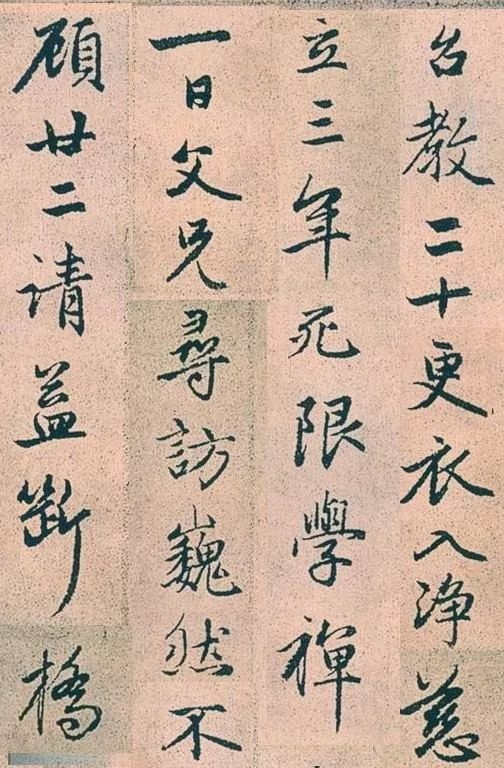 台教二十更衣入淨慈
立三年死限學禪
一日父兄尋訪巍然不
顧廿二請益斷橋